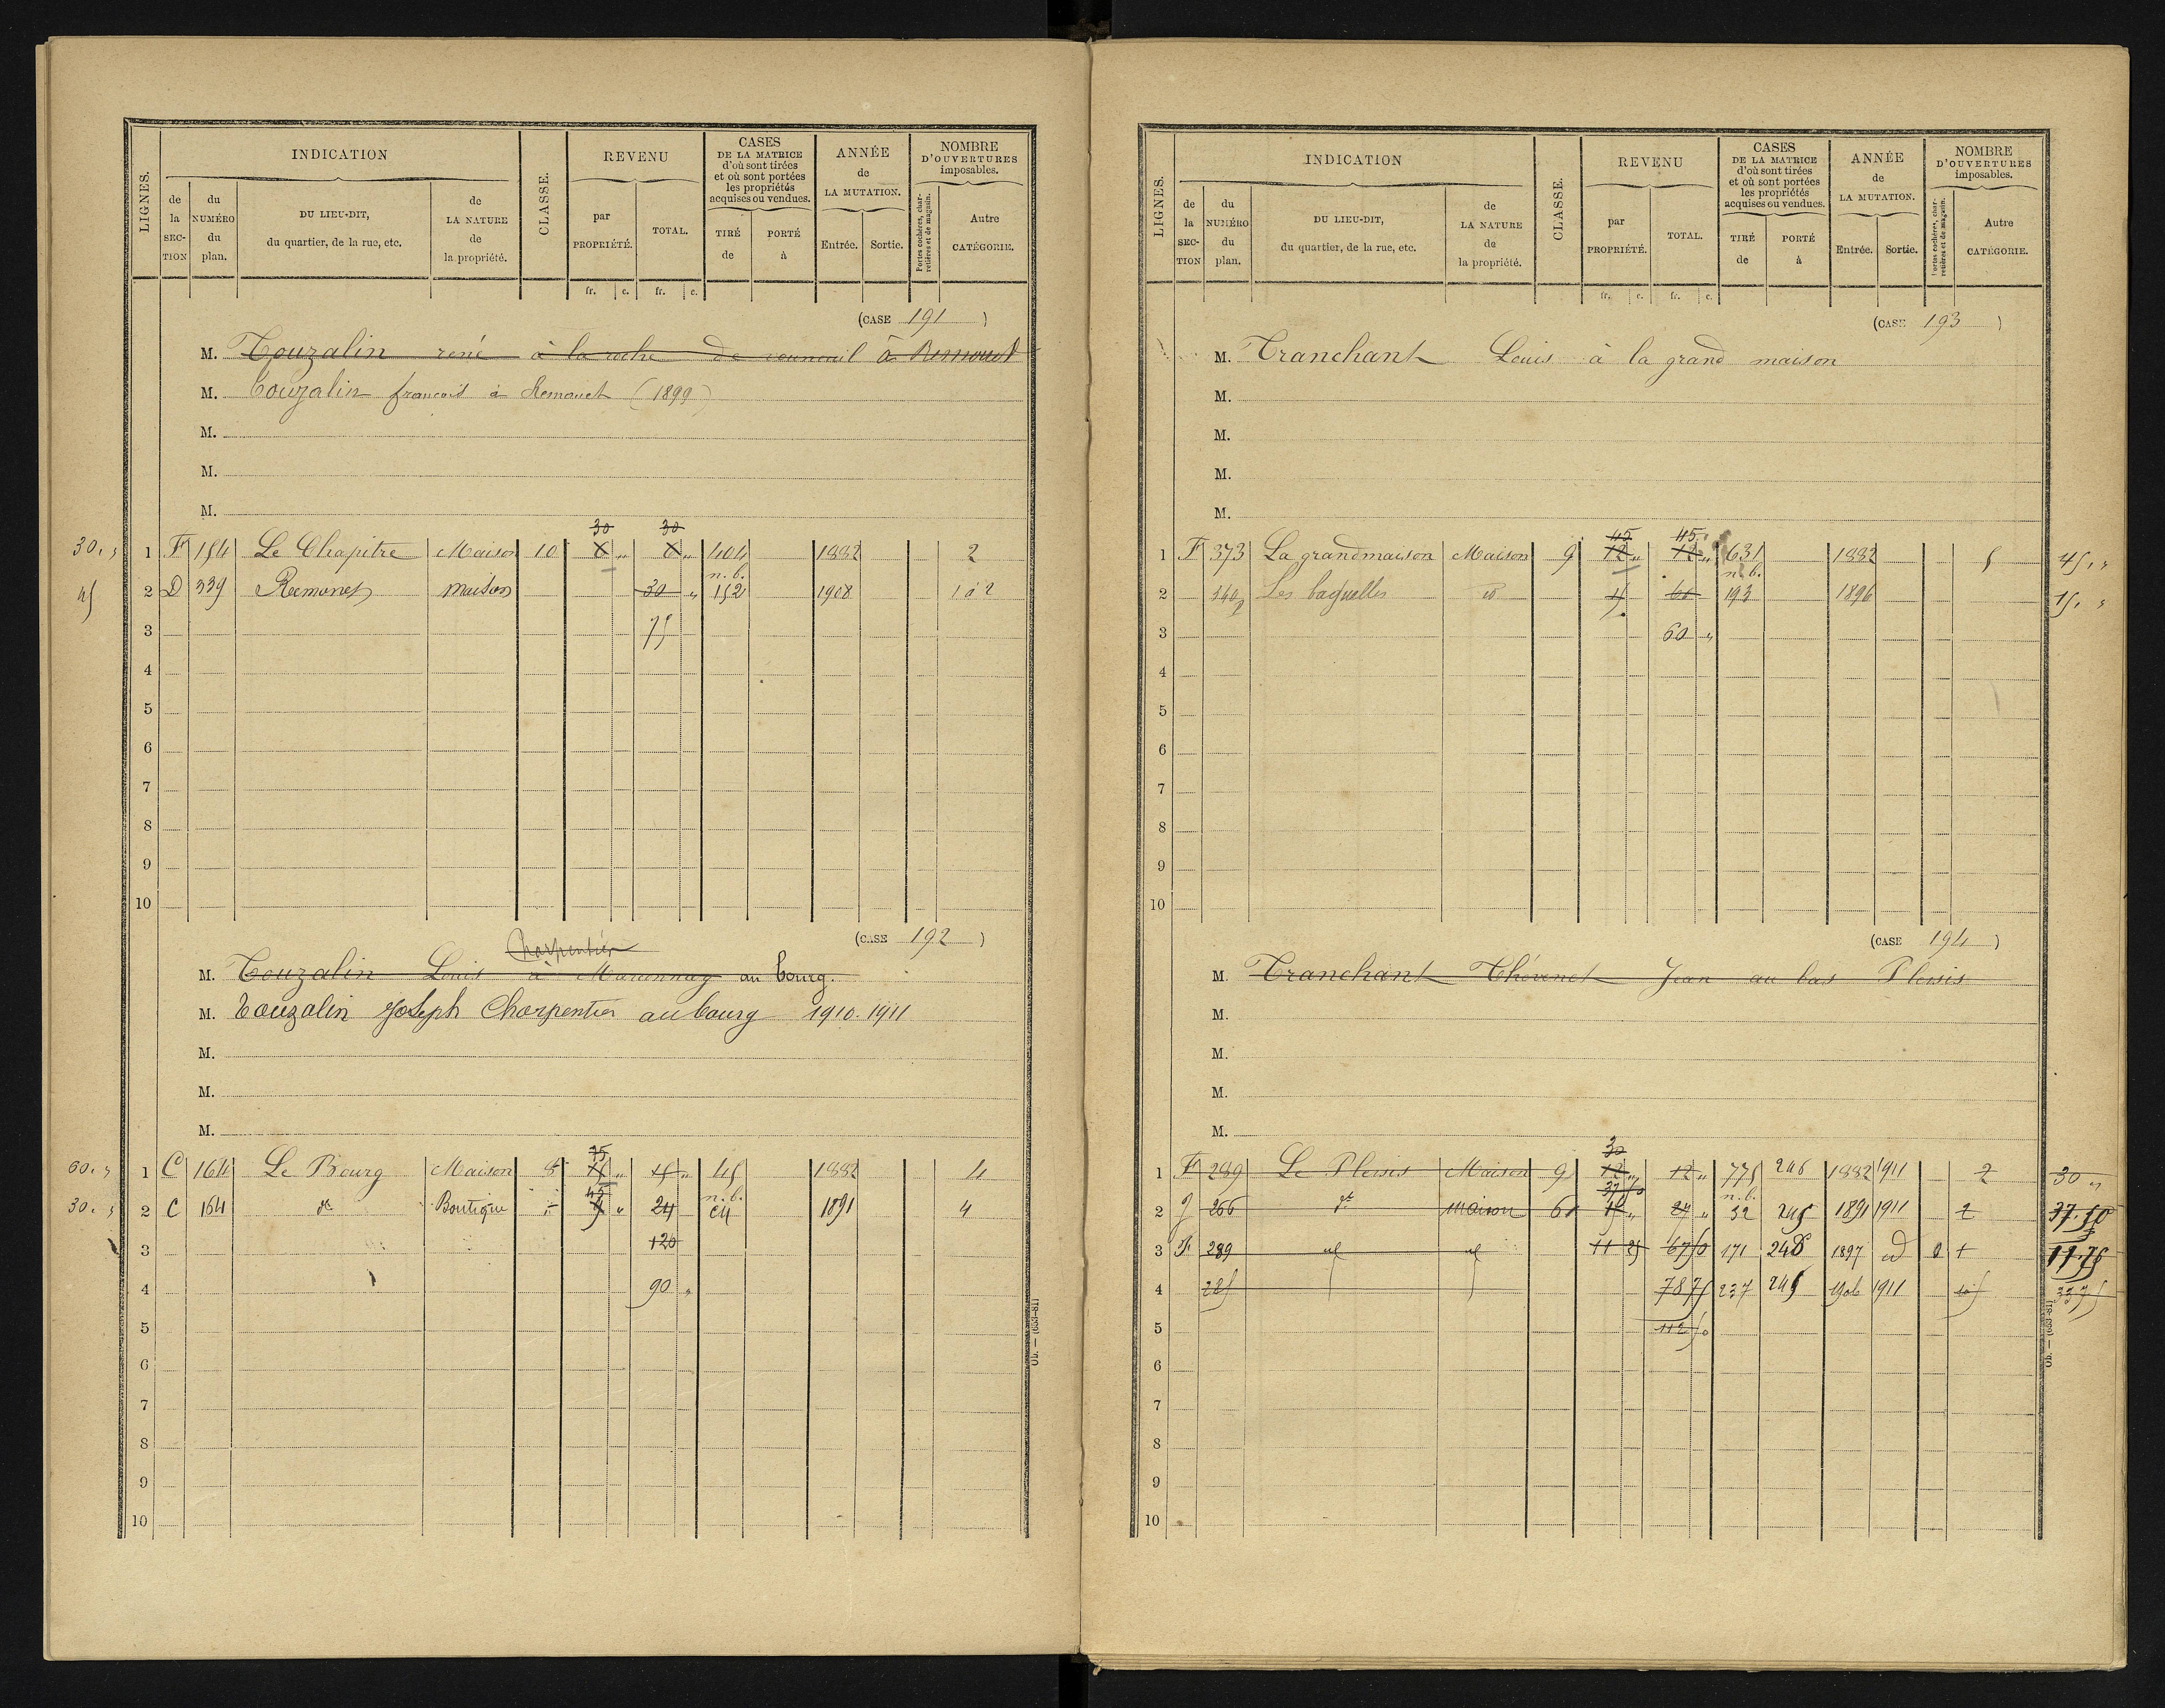 LIGNES. INDICATION CLASSE. REVENU CASES DE LA MATRICE d'où sont tirées et où sont portées les propriétés acquises ou vendues. ANNÉE de LA MUTATION. NOMBRE D'OUVERTURES imposables.
de la SECTION du NUMÉRO du plan. DU LIEU-DIT, du quartier, de la rue, etc. de LA NATURE de la propriété. par PROPRIÉTÉ. TOTAL. TIRÉ de PORTÉ à Entrée. Sortie. Portes cochères, charretières et de magasin. Autre CATÉGORIE.
fr. c. fr. c.
(CASE 191 )
M. Touzalin rené à la roche de à Remouet
M. Touzalin francois à Remouet (1899)
M.
M.
M.
30 30
30. " 1 F 154 Le Chapitre Maison 10 " " 404 1882 2
n. b.
45 2 D 339 Remouet maison 30 " 152 1908
3 75
4
5
6
7
8
9
10
(CASE 192 )
Charpentier
M. Touzalin Louis à au bourg.
M. Touzalin Joseph Charpentier au bourg 1910-1911
M.
M.
M.
60. " 1 C 164 Le Bourg Maison 8 " 15 " 45 1882 4
45 n. b.
30. " 2 C 164 do Boutique " 24 1891 4
3 120
4 90 "
5
6
7
8
9
10
Ob. — (653-81)
LIGNES. INDICATION CLASSE. REVENU CASES DE LA MATRICE d'où sont tirées et où sont portées les propriétés acquises ou vendues. ANNÉE de LA MUTATION. NOMBRE D'OUVERTURES imposables.
de la SECTION du NUMÉRO du plan. DU LIEU-DIT, du quartier, de la rue, etc. de LA NATURE de la propriété. par PROPRIÉTÉ. TOTAL. TIRÉ de PORTÉ à Entrée. Sortie. Portes cochères, charretières et de magasin. Autre CATÉGORIE.
fr. c. fr. c.
(CASE 193 )
M. Tranchant Louis à la grand maison
M.
M.
M.
M.
45 45
1 F 373 La grandmaison Maison 9 12 " 12 " 631 1882 5 45. "
n. b.
2 140p Les baguelles id 15 60 193 1896 15. "
3 60 "
4
5
6
7
8
9
10
(CASE 194 )
M. Tranchant Thévenet Jean au bas Plessis
M.
M.
M.
M.
30
1 F 289 Le Plessis Maison 9 12 " 12 " 775 246 1882 1911 2 30 "
n. b.
2 266 do maison 61 " 27 " 32 245 1891 1911 2 37.50
3 F 289 id id 11 25 67 50 171 248 1897 id 0 1 11.75
4 285 78 75 237 245 1906 1911
5 112 50
6
7
8
9
10
Ob. — (653-81)